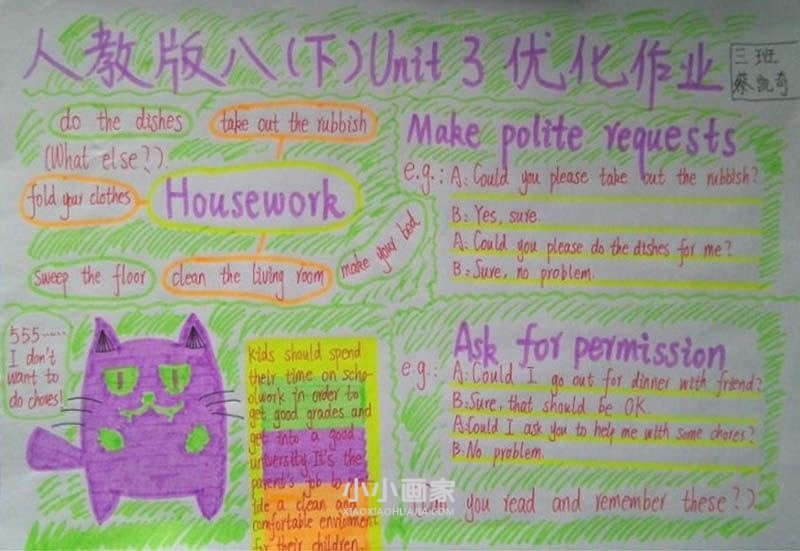 人教版八(下)Unit 3 优化作业
三班
蔡凯奇
do the dishes
take out the rubbish
(What else?).
fold your clothes
Housework
make your bed
sweep the floor
clean the living room
Make polite requests
e.g.: A: Could you please take out the rubbish?
B: Yes, sure.
A: Could you please do the dishes for me?
B: Sure, no problem.
555……
I don't
want to
do chores!
Kids should spend
their time on scho-
olwork in order to
get good grades and
get into a good
university. It's the
parent's job to
ide a clean and
comfortable environment
for their children.
Ask for permission
e.g.:
A: Could I go out for dinner with friend?
B: Sure, that should be OK.
A: Could I ask you to help me with some chores?
B: No problem.
you read and remember these?).
小小画家
XIAOXIAOHUAJIA.COM